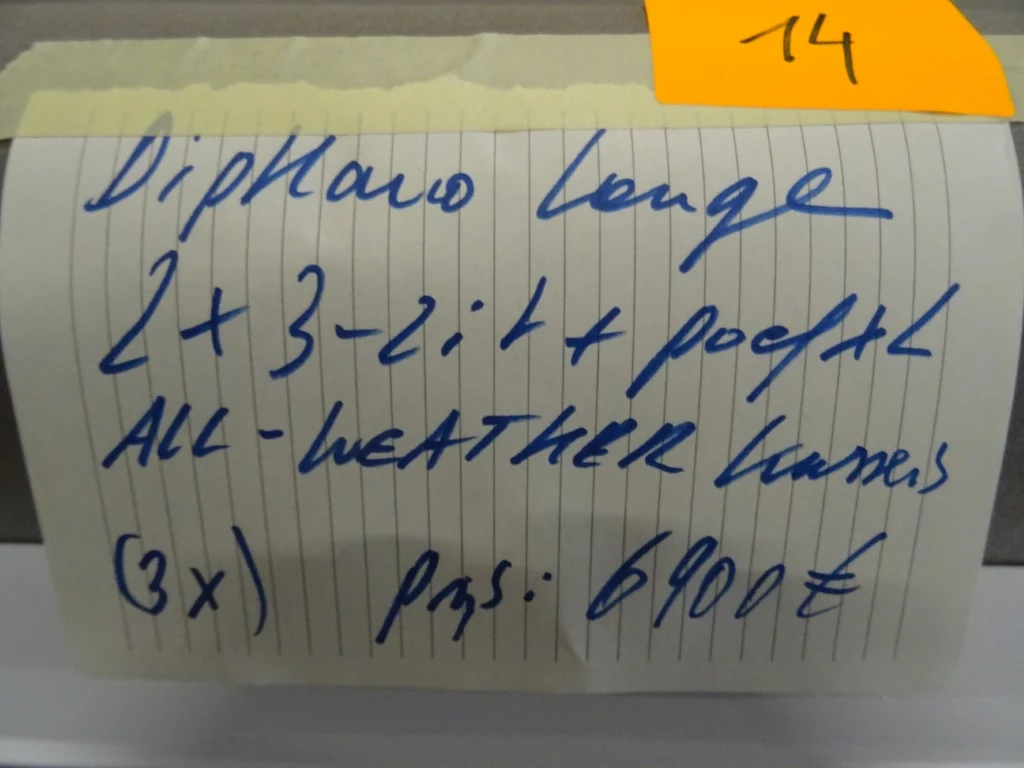 14
DipHano Lounge
2 x 3-zit + poef XL
ALL-WEATHER kussens
(3x) prijs: 6900 €